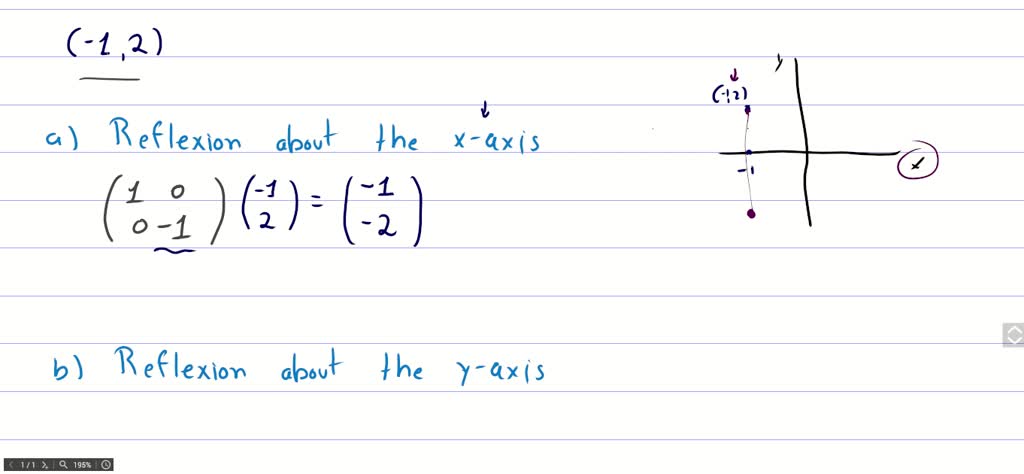 (-1,2)
y
(-1,2)
a) Reflexion about the x-axis
-1
x
(1 0
0 -1) (-1
2) = (-1
-2)
b) Reflexion about the y-axis
1/1 195%